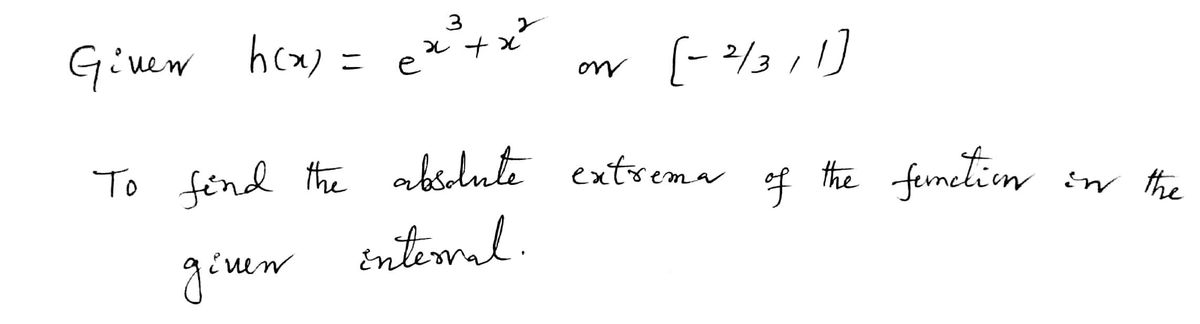 Given h(x) = e^{x^3+x^2} on [-2/3, 1]
To find the absolute extrema of the function in the
given interval.